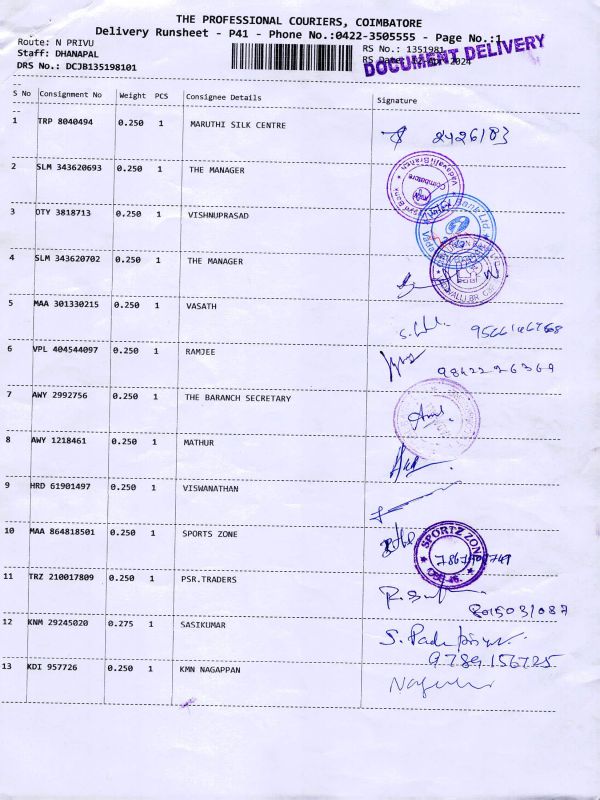 THE PROFESSIONAL COURIERS, COIMBATORE
Delivery Runsheet - P41 - Phone No.:0422-3505555 - Page No.:1
Route: N PRIVU
RS No.: 1351981
Staff: DHANAPAL
RS Date: 2024
DOCUMENT DELIVERY
DRS No.: DCJB135198101
S No Consignment No Weight PCS Consignee Details Signature
1 TRP 8040494 0.250 1 MARUTHI SILK CENTRE 2426183
2 SLM 343620693 0.250 1 THE MANAGER
Vadavalli Branch
Coimbatore
Bank
3 OTY 3818713 0.250 1 VISHNUPRASAD
Bank Ltd
4 SLM 343620702 0.250 1 THE MANAGER
5 MAA 301330215 0.250 1 VASATH
6 VPL 404544097 0.250 1 RAMJEE
7 AWY 2992756 0.250 1 THE BARANCH SECRETARY
8 AWY 1218461 0.250 1 MATHUR
9 HRD 61901497 0.250 1 VISWANATHAN
10 MAA 864818501 0.250 1 SPORTS ZONE
SPORTZ ZONE
11 TRZ 210017809 0.250 1 PSR.TRADERS
12 KNM 29245020 0.275 1 SASIKUMAR
9789156725
13 KDI 957726 0.250 1 KMN NAGAPPAN